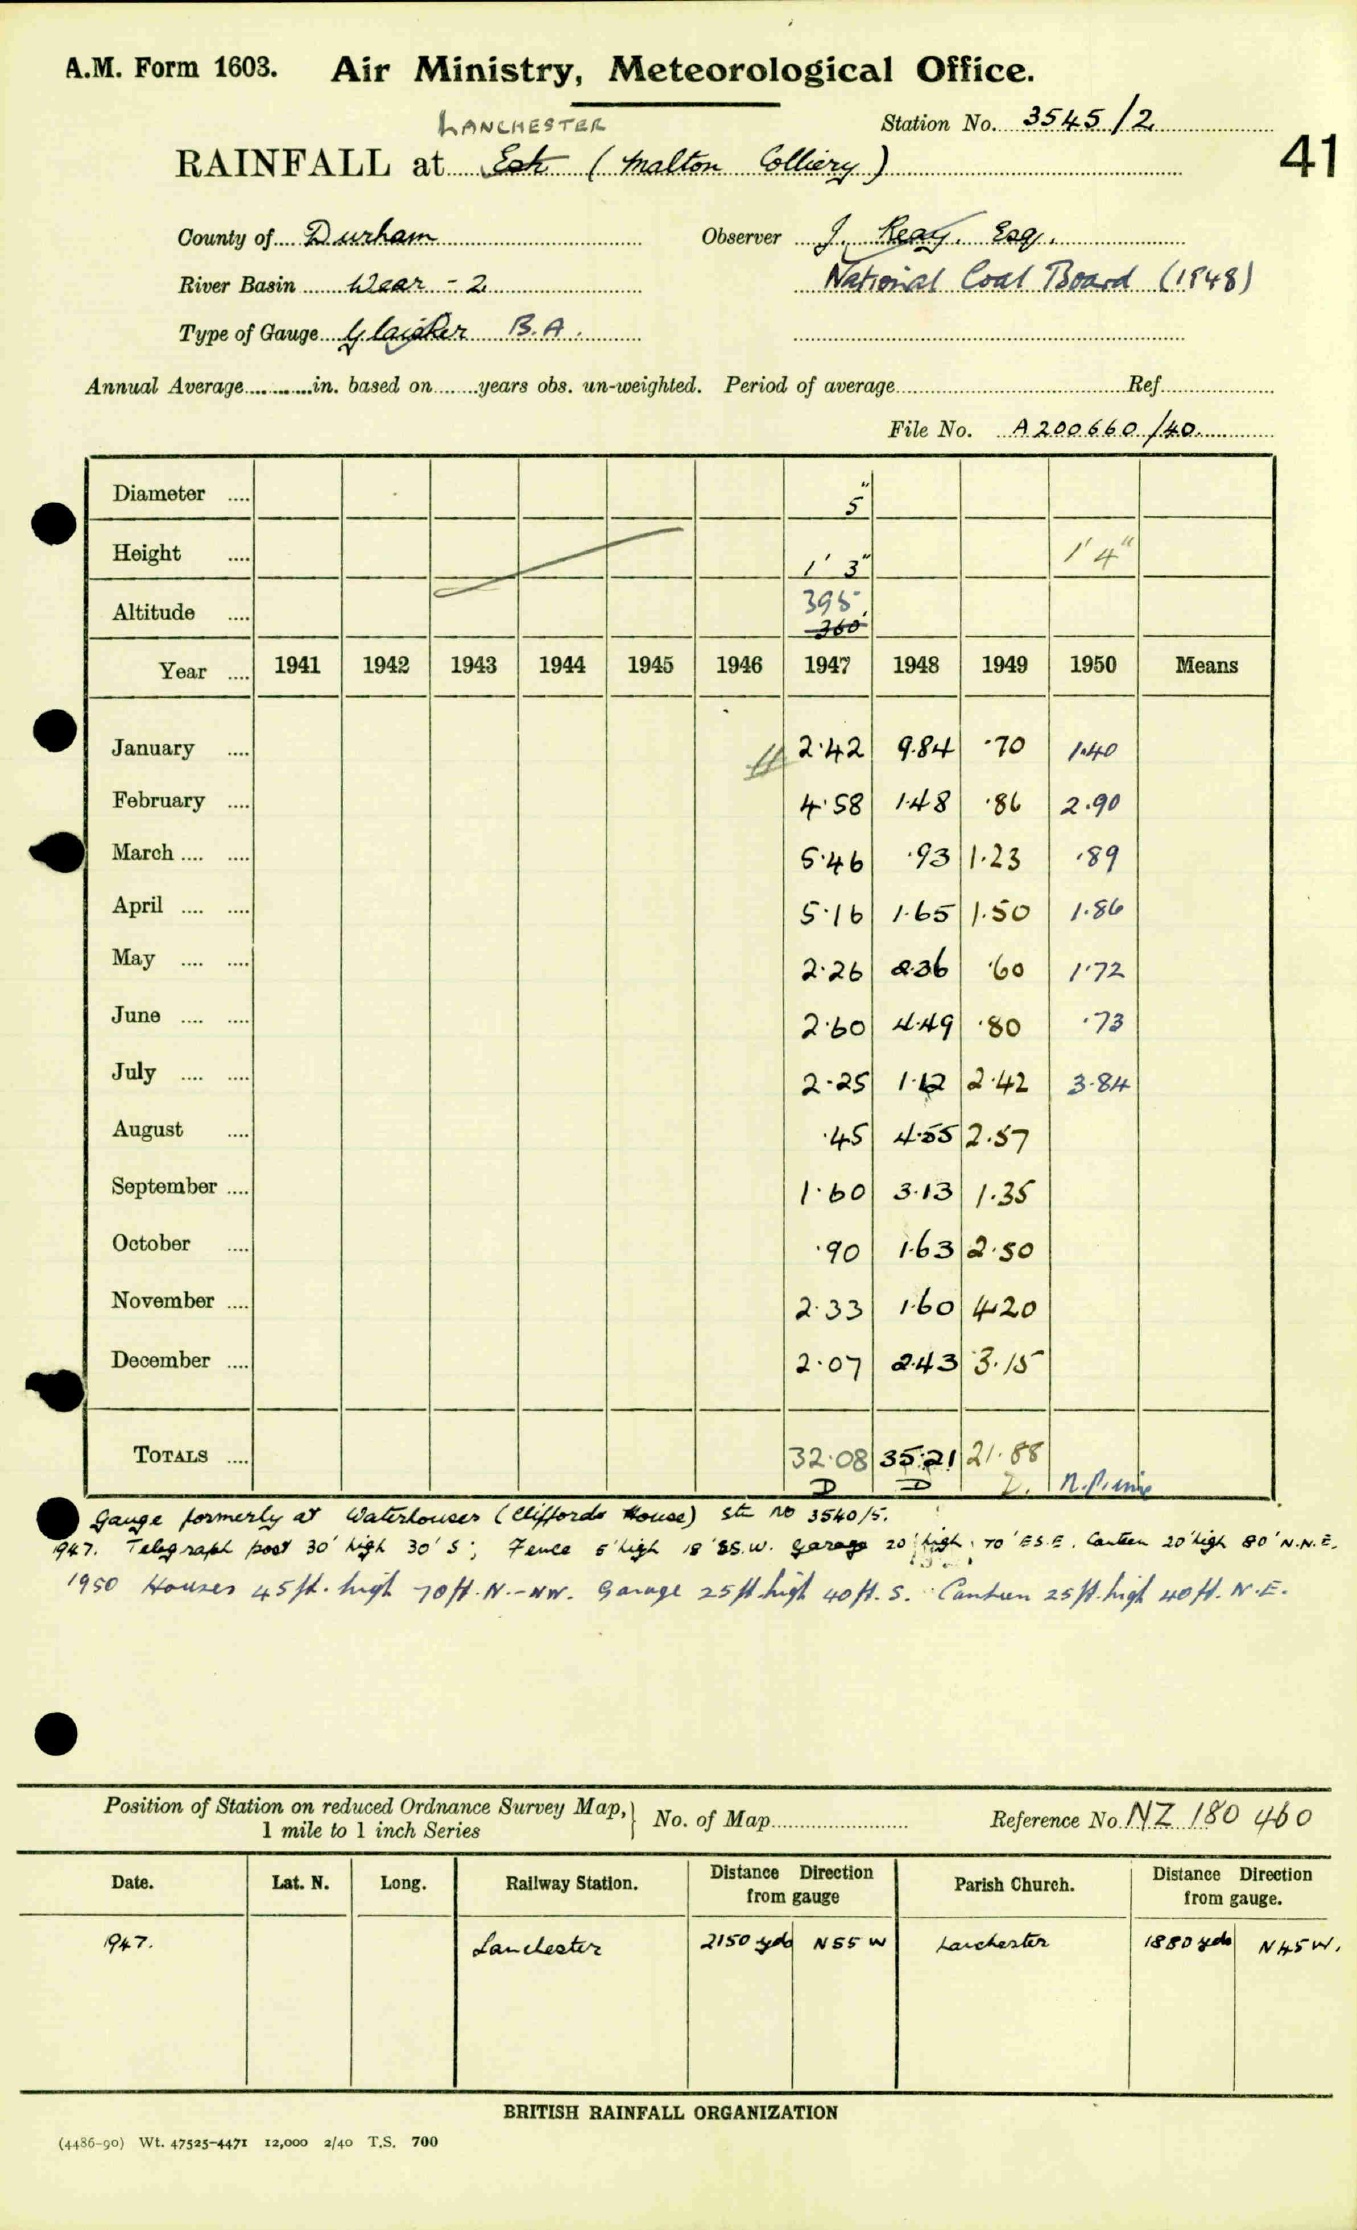 A.M. Form 1603. Air Ministry, Meteorological Office.
LANCHESTER
Station No. 3545/2
41
RAINFALL at Esh (Malton Colliery)
County of Durham Observer J. Reay. Esq.
River Basin Wear - 2 National Coal Board (1948)
Type of Gauge Glaisher B.A.
Annual Average in. based on years obs. un-weighted. Period of average Ref.
File No. A200660/40
Diameter 5"
Height 1' 3" 1' 4"
Altitude 395 360
Year 1941 1942 1943 1944 1945 1946 1947 1948 1949 1950 Means
January 2.42 9.84 .70 1.40
February 4.58 1.48 .86 2.90
March 5.46 .93 1.23 .89
April 5.16 1.65 1.50 1.86
May 2.26 2.36 .60 1.72
June 2.60 4.49 .80 .73
July 2.25 1.12 2.42 3.84
August .45 4.55 2.57
September 1.60 3.13 1.35
October .90 1.63 2.50
November 2.33 1.60 4.20
December 2.07 2.43 3.15
TOTALS 32.08 35.21 21.88
D D D.
Gauge formerly at Waterhouses (Cliffords House) Stn No 3540/5.
1947. Telegraph post 30' high 30' S; Fence 5' high 18' SS.W. Garage 20' high, 70' E.S.E. Canteen 20' high 80' N.N.E.
1950 Houses 45 ft. high 70 ft. N.-NW. Garage 25 ft. high 40 ft. S. Canteen 25 ft. high 40 ft. N.E.
Position of Station on reduced Ordnance Survey Map, 1 mile to 1 inch Series } No. of Map Reference No. NZ 180 460
Date. Lat. N. Long. Railway Station. Distance Direction from gauge Parish Church. Distance Direction from gauge.
1947. Lanchester 2150 yds N55W Lanchester 1880 yds N45W.
BRITISH RAINFALL ORGANIZATION
(4486-90) Wt. 47525-4471 12,000 2/40 T.S. 700